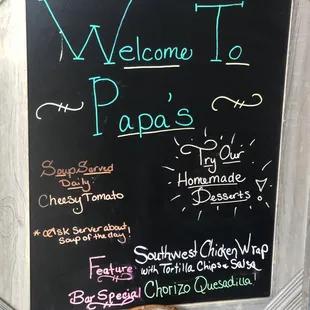 Welcome To
Papa's
Soup Served
Daily:
Cheesy Tomato
* Ask Server about
soup of the day!
Try Our
Homemade
Desserts!
Feature
Southwest Chicken Wrap
with Tortilla Chips & Salsa
Bar Special
Chorizo Quesadilla!